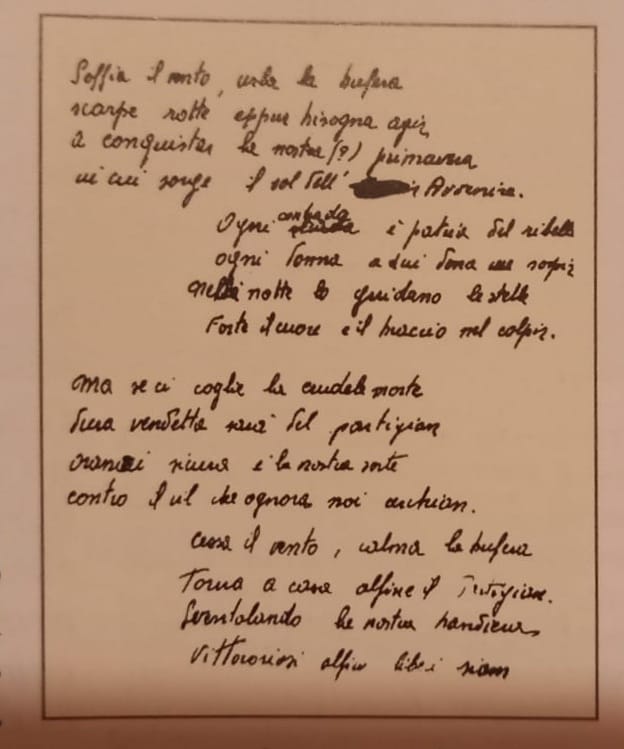 Soffia il vento, urla la bufera
scarpe rotte eppur bisogna agir,
a conquistar la nostra (?) primavera
in cui sorge il sol dell' Avvenire.
Ogni contrada è patria del ribelle
ogni donna a lui dona un sospir
Nella notte lo guidano le stelle
Forte il cuore e il braccio nel colpir.
Ma se ci coglie la crudele morte
dura vendetta sarà del partigian
oramai sicura è la nostra sorte
contro il vil che ognora noi cerchiam.
Cessa il vento, calma la bufera
Torna a casa alfine il Partigian.
Sventolando la nostra bandiera
Vittoriosi alfin liberi siam